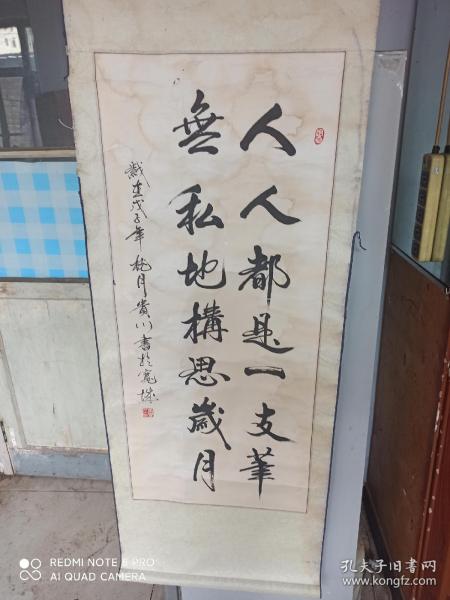 人人都是一支筆
無私地構思歲月
歲在戊子年桃月貴川書於寬城
REDMI NOTE 8 PRO
AI QUAD CAMERA
孔夫子旧书网
www.kongfz.com